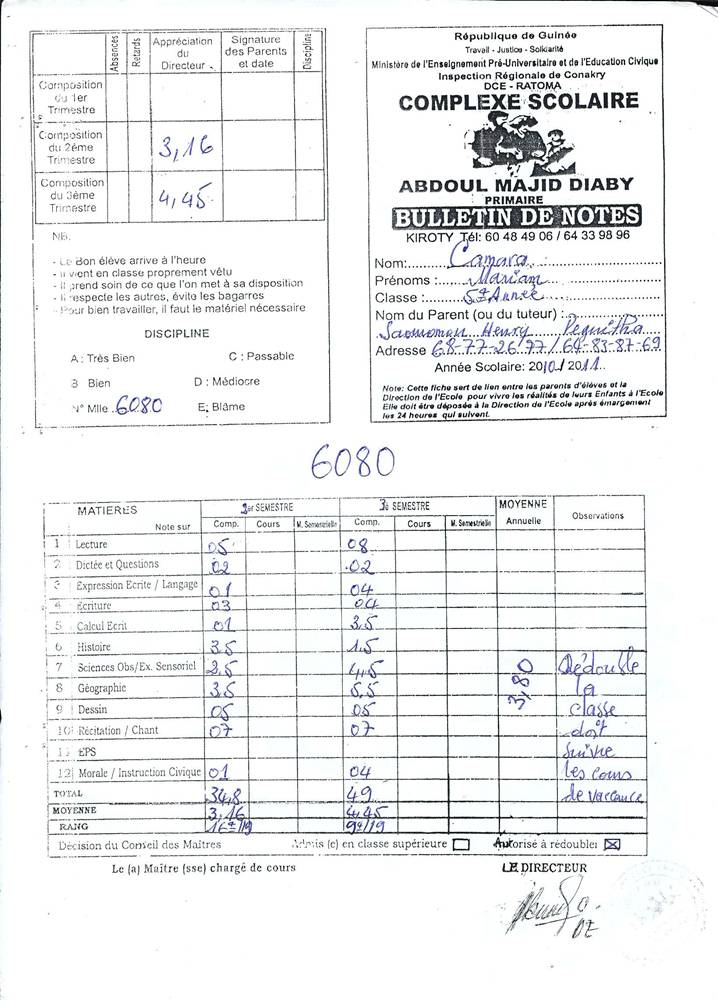 Absences Retards Appréciation du Directeur Signature des Parents et date Discipline
Composition du 1er Trimestre
Composition du 2ème Trimestre 3,16
Composition du 3ème Trimestre 4,45
NB.
- Le Bon élève arrive à l'heure
- Il vient en classe proprement vêtu
- Il prend soin de ce que l'on met à sa disposition
- Il respecte les autres, évite les bagarres
- Pour bien travailler, il faut le matériel nécessaire
DISCIPLINE
A : Très Bien C : Passable
B Bien D : Médiocre
N° Mlle 6080 E: Blâme
République de Guinée
Travail - Justice - Solidarité
Ministère de l'Enseignement Pré-Universitaire et de l'Education Civique
Inspection Régionale de Conakry
DCE - RATOMA
COMPLEXE SCOLAIRE
ABDOUL MAJID DIABY
PRIMAIRE
BULLETIN DE NOTES
KIROTY Tél: 60 48 49 06 / 64 33 98 96
Nom: Camara
Prénoms : Mariam
Classe : 5è Année
Nom du Parent (ou du tuteur) :
Henry
Adresse 68-77-26/97 / 64-83-87-69
Année Scolaire: 2010 / 2011
Note: Cette fiche sert de lien entre les parents d'élèves et la
Direction de l'Ecole pour vivre les réalités de leurs Enfants à l'Ecole
Elle doit être déposée à la Direction de l'Ecole après émargement
les 24 heures qui suivent.
6080
MATIERES Note sur 1er SEMESTRE 3è SEMESTRE MOYENNE Annuelle Observations
Comp. Cours M. Semestrielle Comp. Cours M. Semestrielle
1 Lecture 05 08
2 Dictée et Questions 02 02
3 Expression Ecrite / Langage 01 04
4 Ecriture 03 04
5 Calcul Ecrit 01 3,5
6 Histoire 3,5 1,5
7 Sciences Obs/Ex. Sensoriel 2,5 4,5 3,80 Dédouble
8 Géographie 3,5 5,5 la
9 Dessin 05 05 classe
10 Récitation / Chant 07 07 doit
11 EPS suivre
12 Morale / Instruction Civique 01 04 les cours
TOTAL 34,8 49 de vaccance
MOYENNE 3,16 4,45
RANG 16è/19 9è/19
Décision du Conseil des Maîtres Admis (e) en classe supérieure Autorisé à redoubler
Le (a) Maître (sse) chargé de cours LE DIRECTEUR